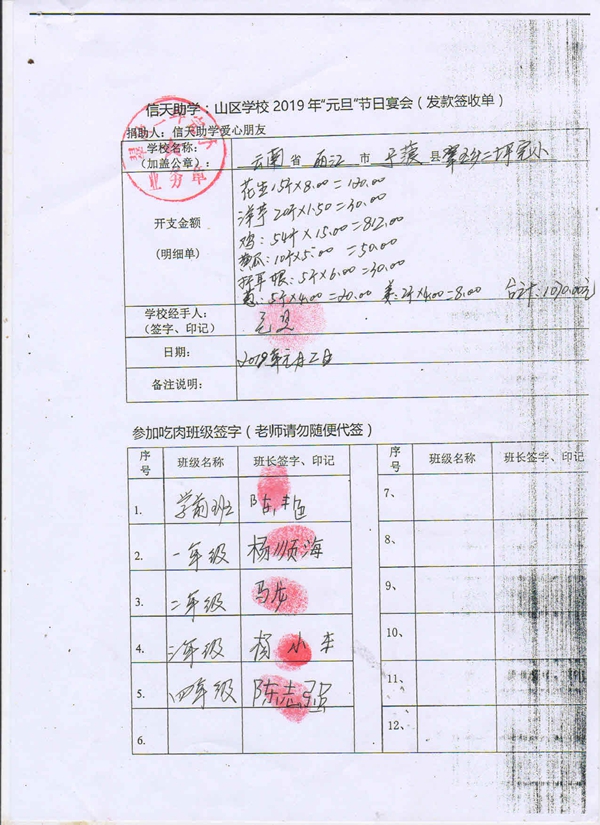 信天助学：山区学校 2019 年“元旦”节日宴会（发款签收单）
捐助人：信天助学爱心朋友
学校名称：
（加盖公章）：
云南 省 丽江 市 宁蒗 县 二坪完小
业务章
开支金额
(明细单)
花生15斤×8.00=120.00
洋芋 20斤×1.50=30.00
鸡：54斤×15.00=812.00
黄瓜：10斤×5.00 =50.00
折耳根：5斤×6.00=30.00
葱：5斤×4.00=20.00 姜：2斤×4.00=8.00 合计：1070.00元
学校经手人：
（签字、印记）
日期：
2019年元月二日
备注说明：
参加吃肉班级签字（老师请勿随便代签）
序号 班级名称 班长签字、印记 序号 班级名称 班长签字、印记
1. 学前班 7、
2. 一年级 杨顺海 8、
3. 二年级 马 9、
4. 三年级 杨小 10、
5. 四年级 陈志强 11、
6. 12、